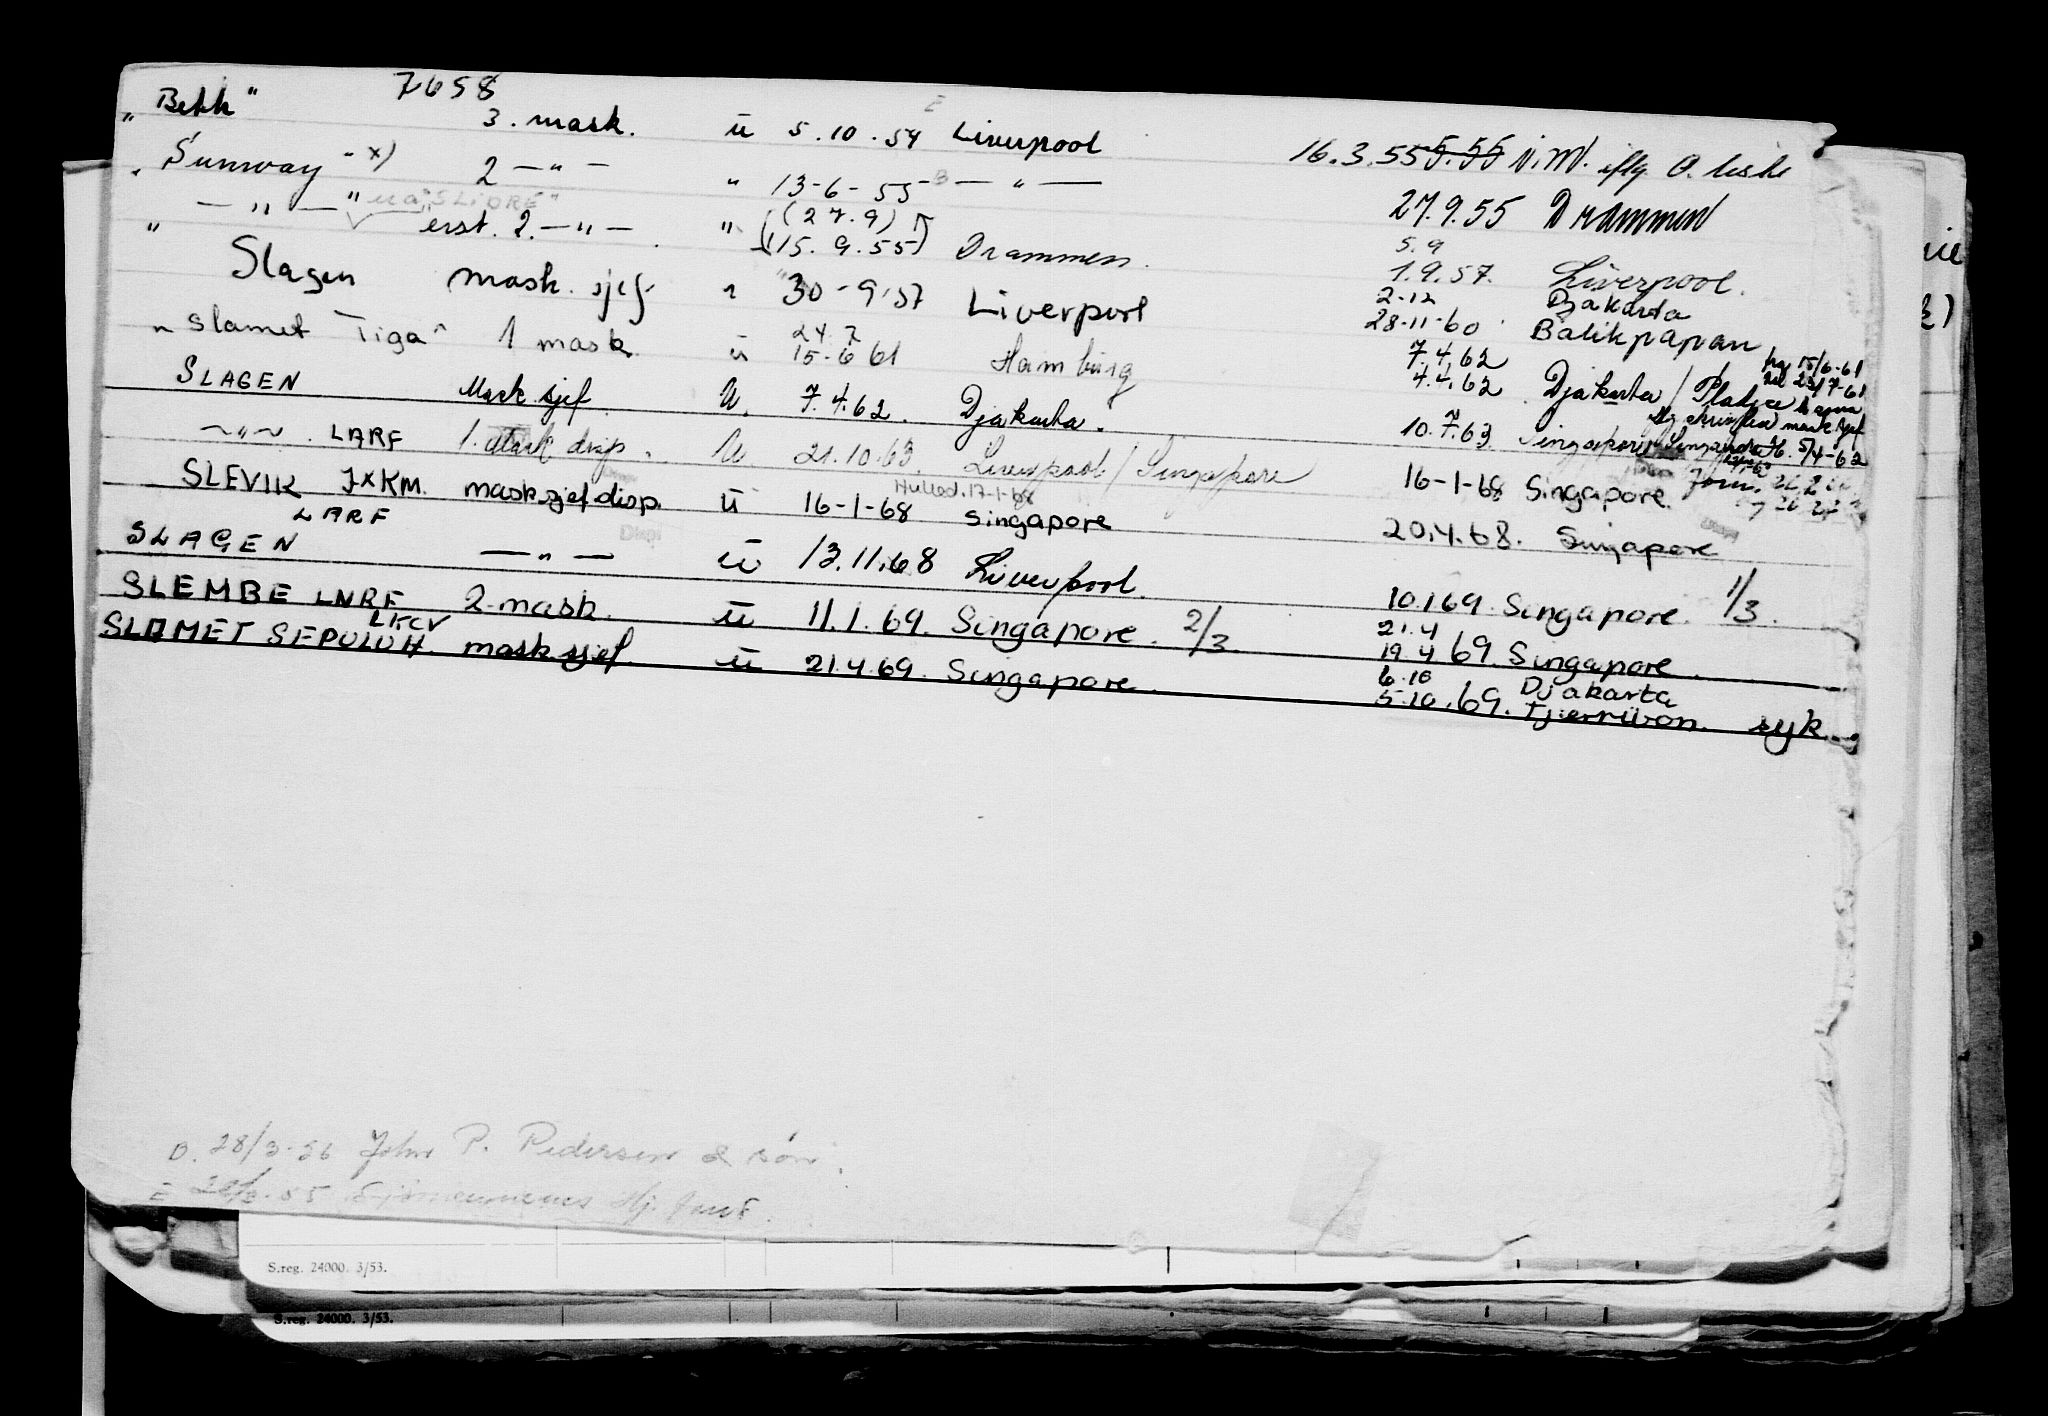 7658
„Bekk" 3. mask. ü 5.10.54 Liverpool 16.3.55 5.55 v.M. iflg O. liste
„Sunway" x) 2 — " — " 13-6-55 — " — 27.9.55 Drammen
" — " — " "SLIDRE" erst. 2. — " — " (27.9) (15.9.55) Drammen. 5.9 1.9.57. Liverpool.
Slagen mask. sjef " 30-9-57 Liverpool 2-12 Djakarta 28-11-60 Balikpapan
"Slamet Tiga" 1 mask. ü 24.7 15-6 61 Hamburg 7.4.62 4.4.62 Djakarta / Pladjoe
hg 15/6-61 til 23/7-61
SLAGEN Mask.sjef. Ü. 7.4.62. Djakarta. 10.7.63. Singapore
mask.sjef 5/4-62
— " — LARF 1. mask disp. Ü. 21.10.63. Liverpool / Singapore 16-1-68 Singapore.
Hulled. 17-1-68
SLEVIK JXKM. masksjef-disp. ü 16-1-68 Singapore 20.4.68. Singapore
Disp
SLAGEN LARF — " — ü 13.11.68 Liverpool. 10.1.69. Singapore. 1/3.
SLEMBE LNRF 2-mask. ü 11.1.69. Singapore. 2/3 21.4 19.4 69. Singapore.
SLAMET SEPULUH LKCV masksjef. ü 21.4.69. Singapore. 6.10 Djakarta 5.10.69. Tjerribon. syk.
B. 28/3-56 John P. Pedersen & søn.
E 55 Sjømennenes Hj. fond.
S.reg. 24000. 3/53.
S.reg. 24000. 3/53.